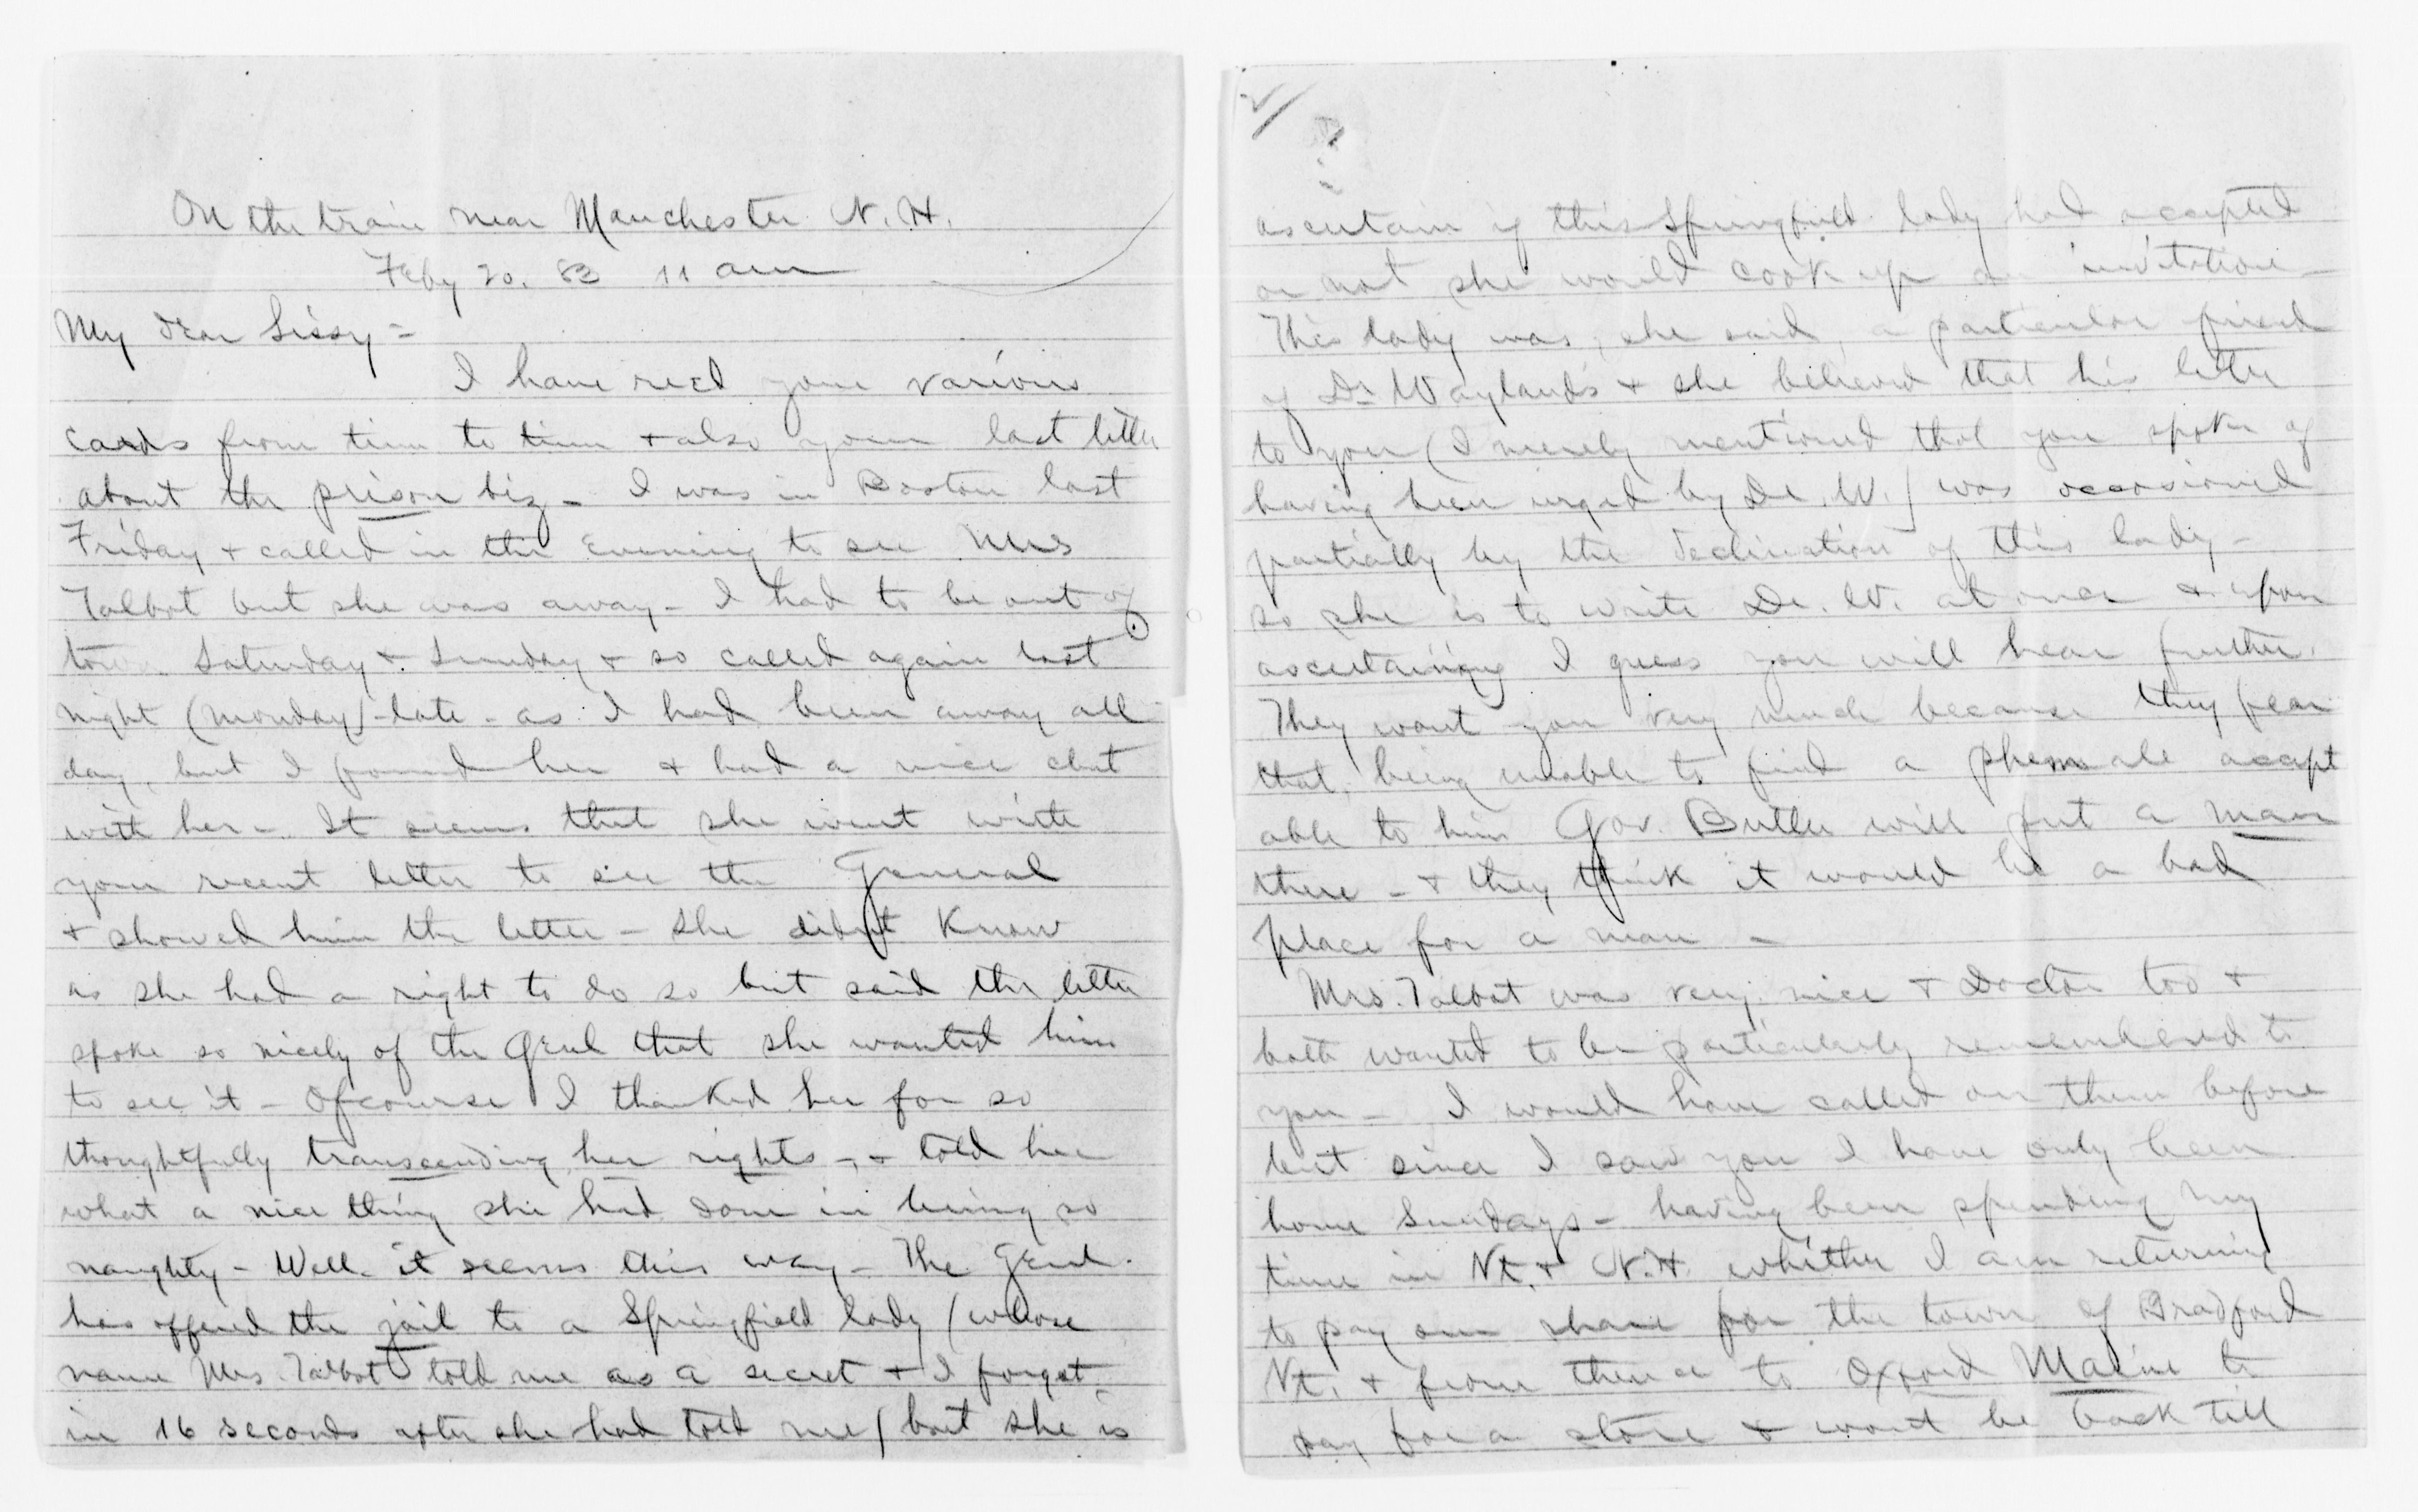 On the train near Manchester N. H.
Feby 20. 83 11 am
My dear Sissy =
I have recd your various
cards from time to time + also your last letter
about the prison biz - I was in Boston last
Friday + called in the Evening to see Mrs
Talbot but she was away - I had to be out of
town Saturday + Sunday + so called again last
night (Monday) - late - as I had been away all
day, but I found her + had a nice chat
with her - It seems that she went with
your recent letter to see the General
+ showed him the letter - She didn't Know
as she had a right to do so but said the letter
spoke so nicely of the Genl that she wanted him
to see it - Of course I thanked her for so
thoughtfully transcending her rights - + told her
what a nice thing she had done in being so
naughty - Well - it seems this way - The Genl.
has offered the jail to a Springfield lady (whose
name Mrs. Talbot told me as a secret + I forgot
in 16 seconds after she had told me) but she is
2/
ascertain if this Springfield lady had accepted
or not she would cook up an invitation -
This lady was, she said, a particular friend
of Dr Wayland's + she believed that his letter
to you (I merely mentioned that you spoke of
having been urged by Dr. W.) was occasioned
partially by the declination of this lady -
so she is to write Dr. W. at once & upon
ascertaining I guess you will hear further.
They want you very much because they fear
that, being unable to find a phemale accept
able to him Gov. Butler will put a man
there - + they think it would be a bad
place for a man -
Mrs. Talbot was very nice + Doctor too +
both wanted to be particularly remembered to
you - I would have called on them before
but since I saw you I have only been
home Sundays - having been spending my
time in Vt. + N.H. whither I am returning
to pay our share for the town of Bradford
Vt. + from thence to Oxford Maine to
pay for a store + wont be back till